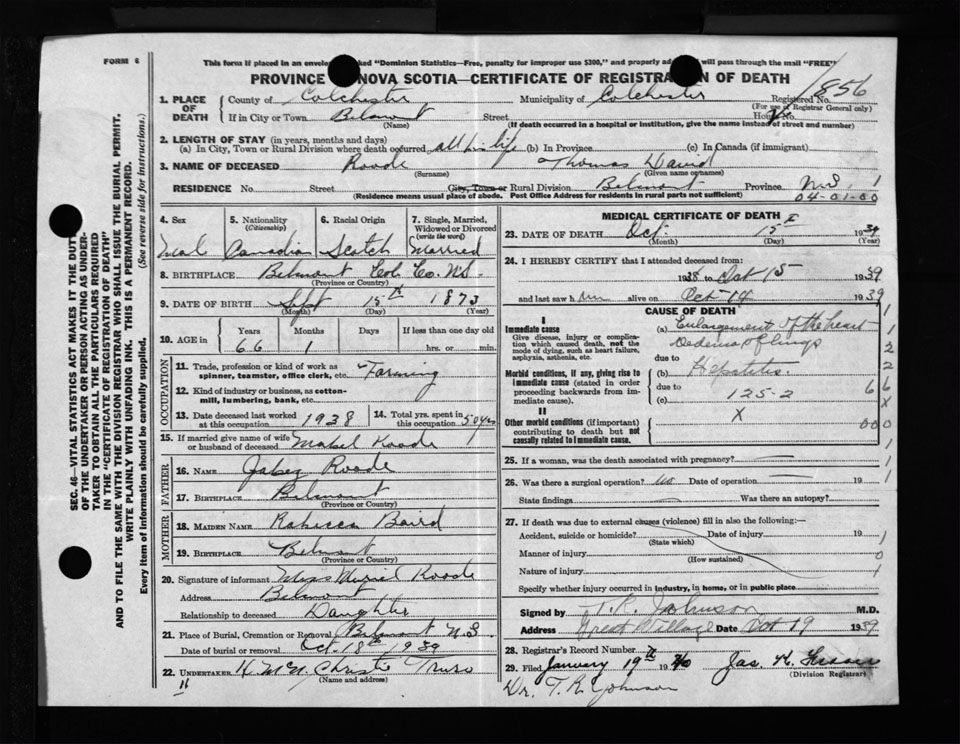 FORM 6
This form if placed in an envelo ked "Dominion Statistics—Free, penalty for improper use $300," and properly ad will pass through the mail "FREE"
PROVINCE NOVA SCOTIA—CERTIFICATE OF REGISTRA N OF DEATH
1. PLACE OF DEATH
County of Colchester Municipality of Colchester Registered No. 1856
(For use of Registrar General only)
If in City or Town Belmont Street House No.
(Name) (If death occurred in a hospital or institution, give the name instead of street and number)
2. LENGTH OF STAY (in years, months and days)
(a) In City, Town or Rural Division where death occurred all his life (b) In Province (c) In Canada (if immigrant)
3. NAME OF DECEASED Roode Thomas David
(Surname) (Given name or names)
RESIDENCE No Street City, Town or Rural Division Belmont Province N.S. 1
(Residence means usual place of abode. Post Office Address for residents in rural parts not sufficient) 04-01-00
4. Sex 5. Nationality (Citizenship) 6. Racial Origin 7. Single, Married, Widowed or Divorced (write the word)
Mal Canadian Scotch Married
8. BIRTHPLACE Belmont Col. Co. N.S.
(Province or Country)
9. DATE OF BIRTH Sept 15th 1873
(Month) (Day) (Year)
10. AGE in Years Months Days If less than one day old
66 1 hrs. or min.
OCCUPATION
11. Trade, profession or kind of work as spinner, teamster, office clerk, etc. Farming
12. Kind of industry or business, as cotton-mill, lumbering, bank, etc.
13. Date deceased last worked at this occupation 1938 14. Total yrs. spent in this occupation 50 yrs
15. If married give name of wife or husband of deceased Mabel Roode
FATHER
16. NAME Jabez Roode
17. BIRTHPLACE Belmont
(Province or Country)
MOTHER
18. MAIDEN NAME Rebecca Baird
19. BIRTHPLACE Belmont
(Province or Country)
20. Signature of informant Miss Muriel Roode
Address Belmont
Relationship to deceased Daughter
21. Place of Burial, Cremation or Removal Belmont N.S.
Date of burial or removal Oct. 18th 1939
22. UNDERTAKER Truro
(Name and address)
MEDICAL CERTIFICATE OF DEATH
23. DATE OF DEATH Oct. 15th 1939
(Month) (Day) (Year)
24. I HEREBY CERTIFY that I attended deceased from:
1938 to Oct 15 1939
and last saw h im alive on Oct 14 1939
CAUSE OF DEATH
I
Immediate cause
Give disease, injury or complication which caused death, not the mode of dying, such as heart failure, asphyxia, asthenia, etc.
(a) Enlargement of the heart
Oedema of lungs
due to
Morbid conditions, if any, giving rise to immediate cause (stated in order proceeding backwards from immediate cause).
(b) Hepatitis.
due to
(c) 125-2
II
Other morbid conditions (if important) contributing to death but not causally related to immediate cause.
X
1
1
2
2
6 6
X
000
1
1
25. If a woman, was the death associated with pregnancy?
26. Was there a surgical operation? no Date of operation 19
State findings Was there an autopsy?
27. If death was due to external causes (violence) fill in also the following:—
Accident, suicide or homicide? Date of injury 19 1
(State which)
Manner of injury 0
(How sustained)
Nature of injury 1
Specify whether injury occurred in industry, in home, or in public place
Signed by T.R. Johnson M.D.
Address Great Village Date Oct 19 1939
28. Registrar's Record Number
29. Filed January 19th 1940 Jas. K.
(Division Registrar)
Dr. T. R. Johnson
11
SEC. 46—VITAL STATISTICS ACT MAKES IT THE DUT
OF THE UNDERTAKER OR PERSON ACTING AS UNDER-
TAKER TO OBTAIN ALL THE PARTICULARS REQUIRED
IN THE "CERTIFICATE OF REGISTRATION OF DEATH"
AND TO FILE THE SAME WITH THE DIVISION REGISTRAR WHO SHALL ISSUE THE BURIAL PERMIT.
WRITE PLAINLY WITH UNFADING INK. THIS IS A PERMANENT RECORD.
Every item of information should be carefully supplied. (See reverse side for instructions.)